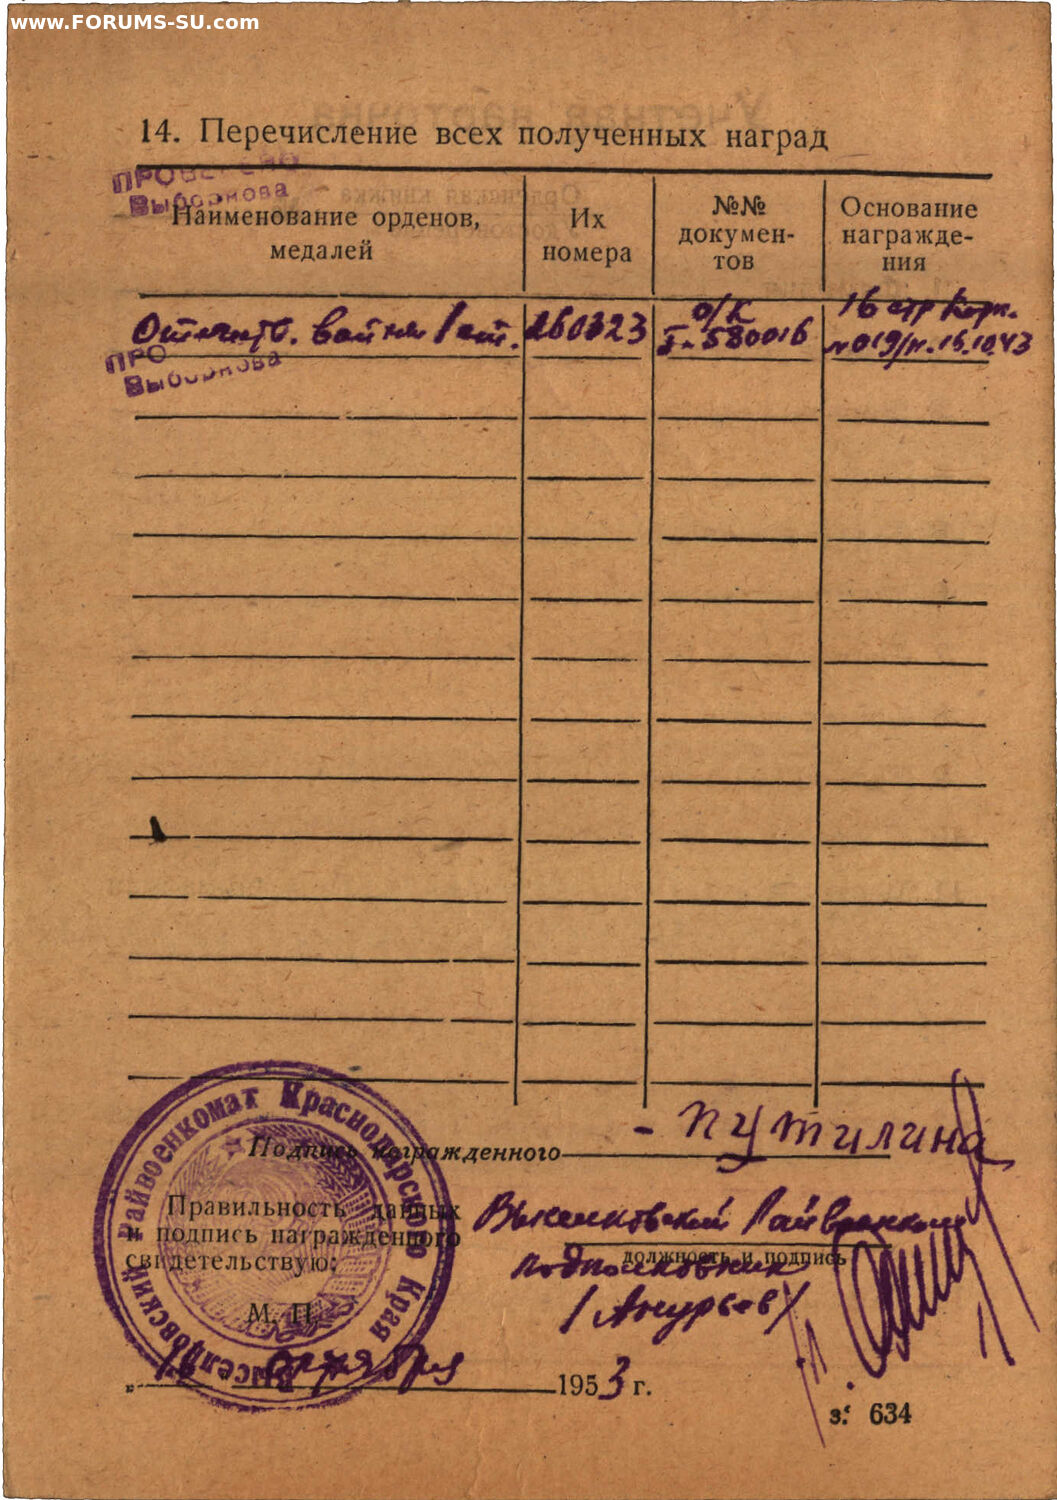 www.FORUMS-SU.com
14. Перечисление всех полученных наград
ПРОВЕРЕНО
Выборнова
Наименование орденов, медалей
Их номера
№№ докумен-тов
Основание награжде-ния
Отечеств. войны I ст.
260323
о/к
I-580016
16 стр Корп.
№019/н. 16.10.43
ПРО
Выборнова
Подпись награжденного
Путилина
Правильность данных
и подпись награжденного
свидетельствую:
М. П.
Выселковский Райвоенком
должность и подпись
подполковник
/Анурьев/
октября 1953 г.
Выселковский Райвоенкомат Краснодарского Края
з. 634